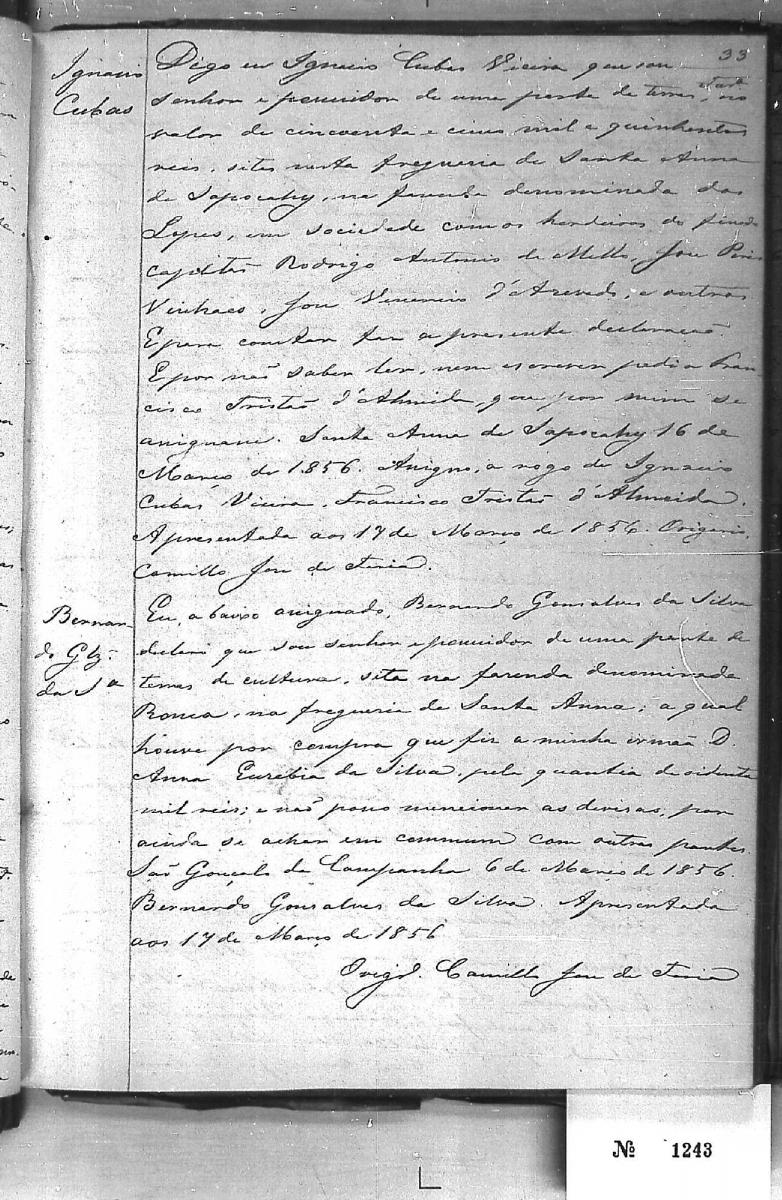 33
Ignacio
Cubas
Digo eu Ignacio Cubas Vieira que sou
senhor e possuidor de uma parte de terras, no
valor de cincoenta e cinco mil e quinhentos
reis, sitas nesta freguesia de Santa Anna
de Sapocahy, na fazenda denominada dos
Lopes, em sociedade com os herdeiros do finado
capitão Rodrigo Antonio de Mello, Jose Pires
, Jose Venancio d'Azevedo, e outros
E para constar faz a presente declaração.
E por não saber ler, nem escrever pedi a Fran-
cisco Tristão d'Almeida, que por mim se
assignasse. Santa Anna de Sapocahy 16 de
Março de 1856. Assigno, a rogo de Ignacio
Cubas Vieira, Francisco Tristão d'Almeida.
Apresentada aos 17 de Março de 1856.
Camillo Jose de Faria.
Bernar-
do Glz.
da Sª
Eu, abaixo assignado, Bernardo Gonsalves da Silva
declaro que sou senhor e possuidor de uma parte de
terras de cultura, sita na fazenda denominada
na freguesia de Santa Anna; a qual
houve por compra que fiz a minha irmãa D
Anna Euzebia da Silva, pela quantia de oitenta
mil reis; e não posso mencionar as devisas, por
ainda se achar em commum com outras partes.
São Gonçalo da Campanha 6 de Março de 1856.
Bernardo Gonsalves da Silva. Apresentada
aos 17 de Março de 1856
Camillo Jose de Faria
Nº 1243